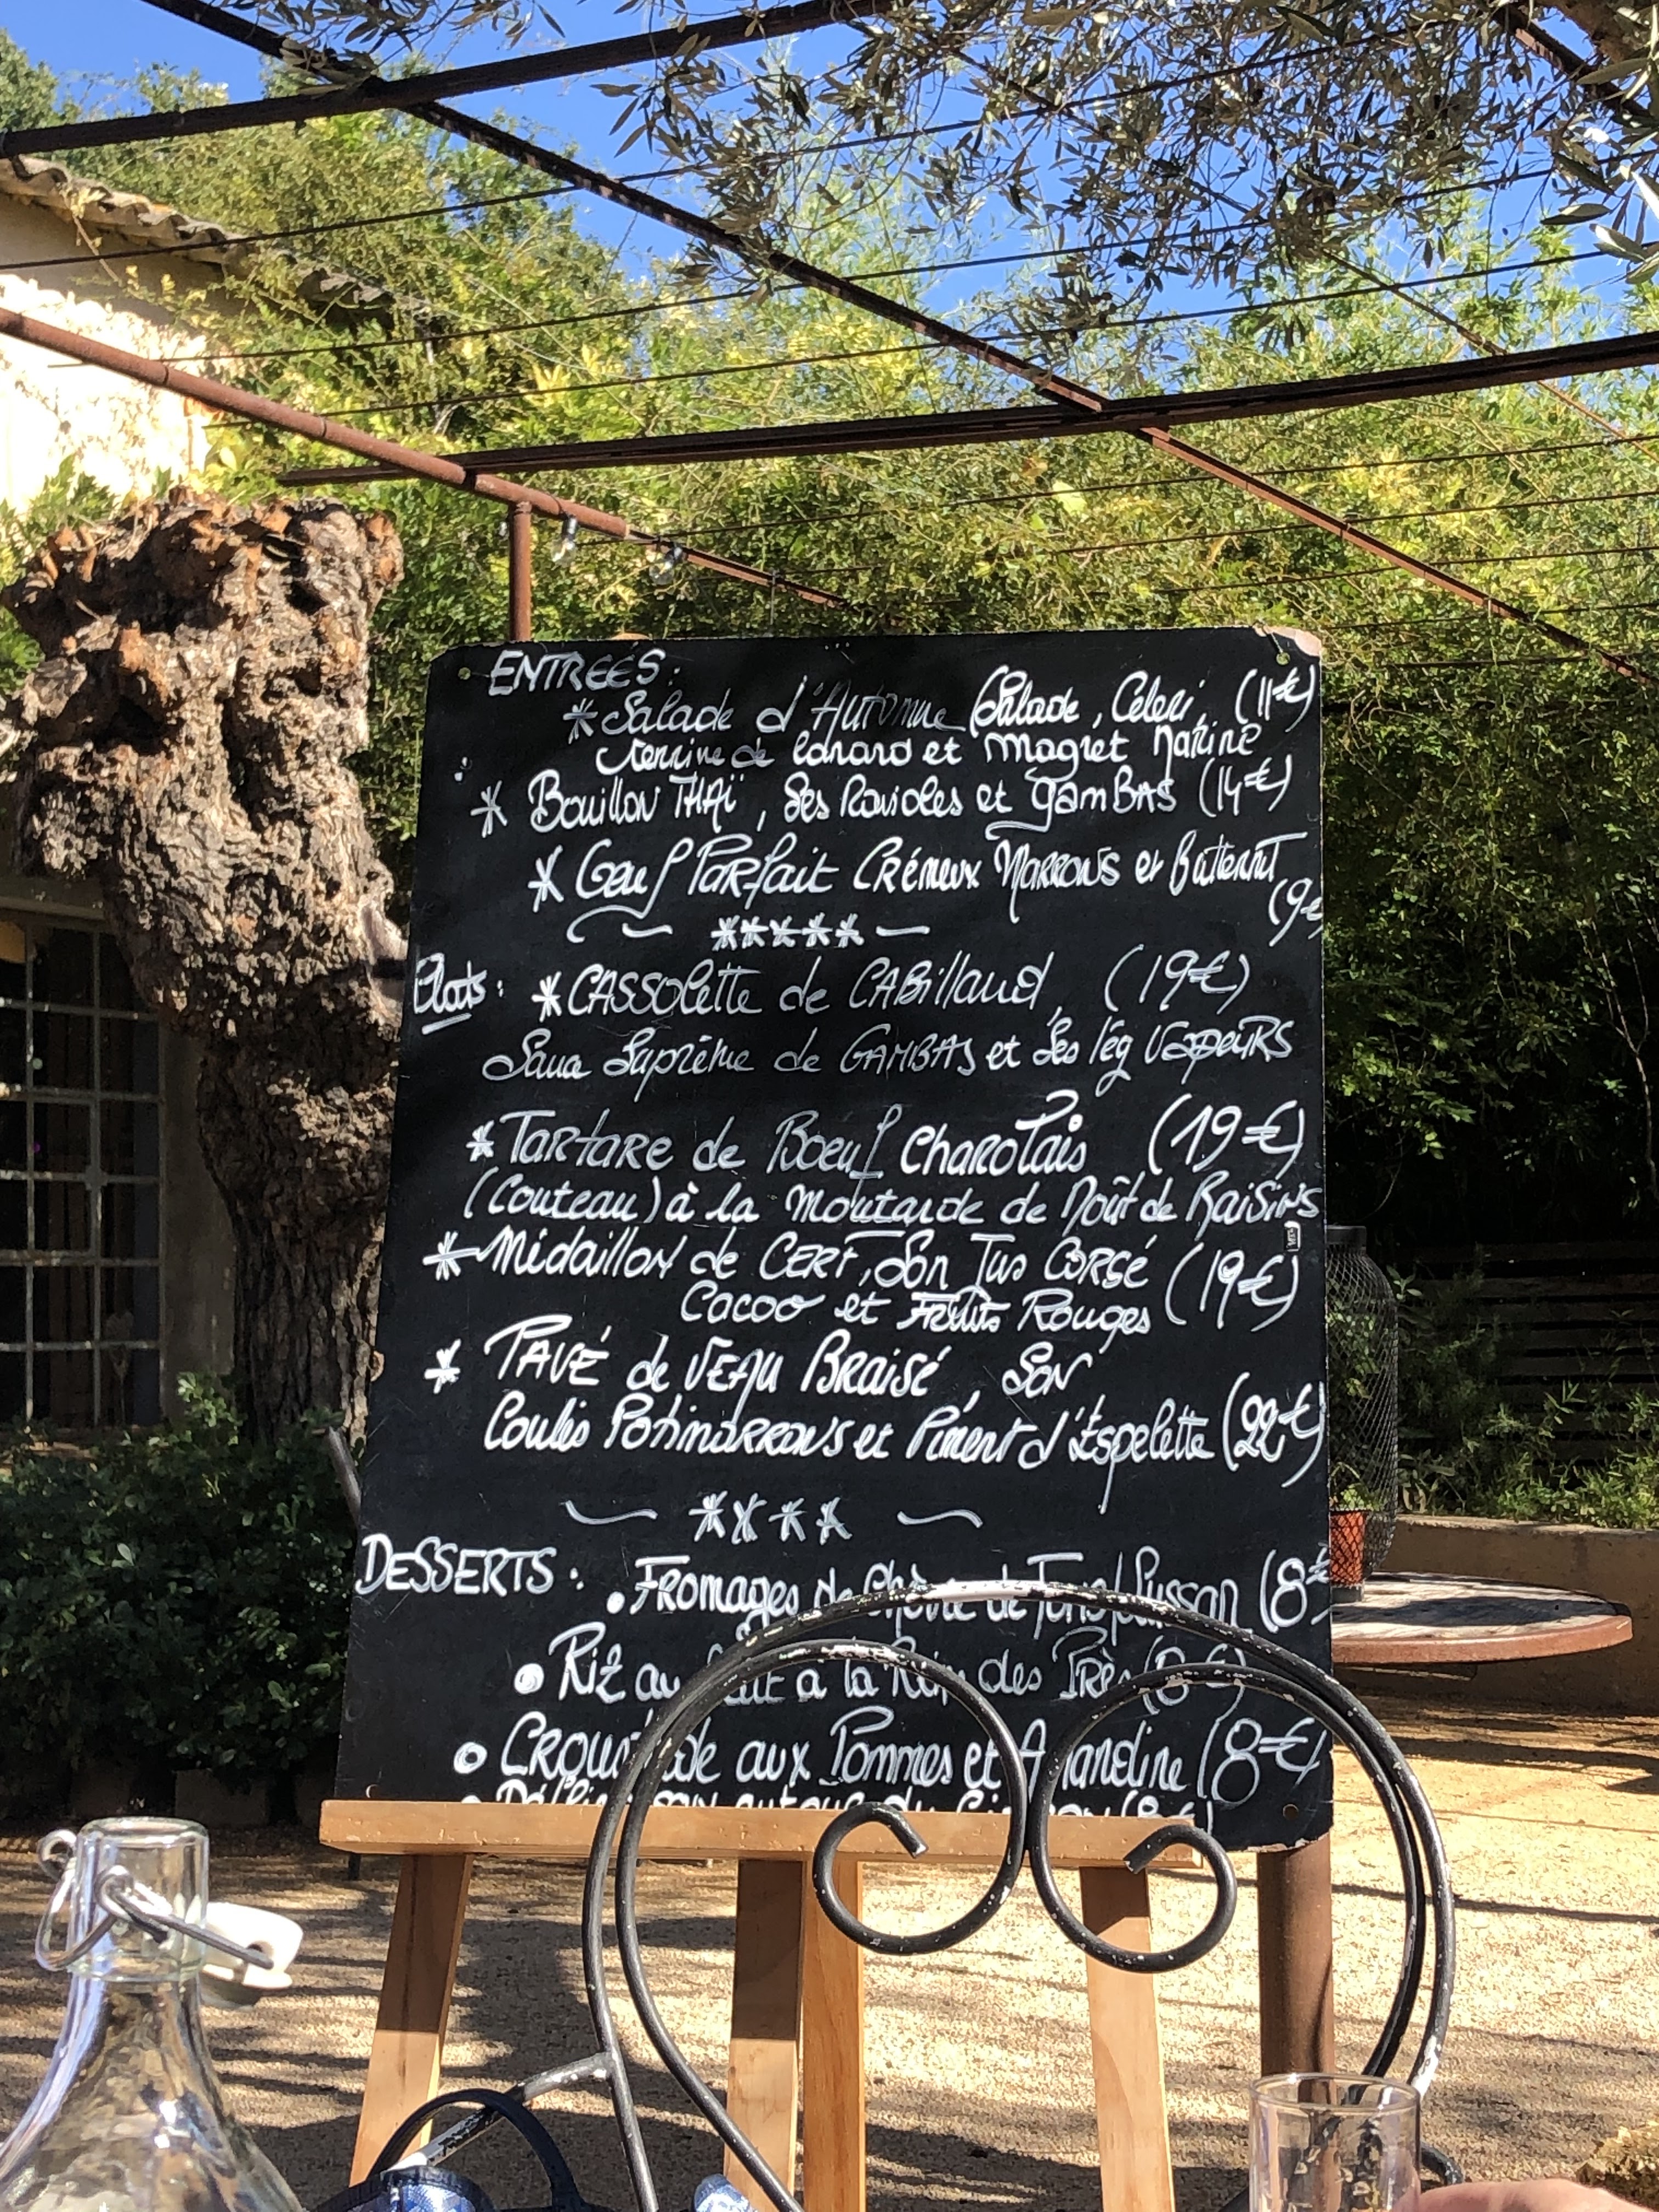 ENTREÉS :
* Salade d'Automne (Salade, Celeri, (11€)
Terrine de Canard et Magret Mariné
* Bouillon THAÏ, Ses Ravioles et gamBAS (14€)
* Oeuf PARfait CRémeux MARRONS et Butternut
(9€
***** 
Plats : * CASSOLette de CABillaud (19€)
Sauce Suprême de GAMBAS et Ses lég VapeuRS
* TARTARE de Boeuf CHAROlais (19€)
(Couteau) à la Moutarde de Moût de RaiSiNS
* Médaillon de CERF, Son Jus CORSÉ
Cacao et Fruits Rouges (19€)
* PAVÉ de VEAU BRaisé, SON
Coulis PotimARRONS et Piment d'Espelette (22€)
****
DESSERTS :
• FRomages de Chèvre de Fons/Lussan (8€
• Riz au Lait a la Rein des PRès (8€)
• CRoustade aux Pommes et Amandine (8€)
autour du (8€)